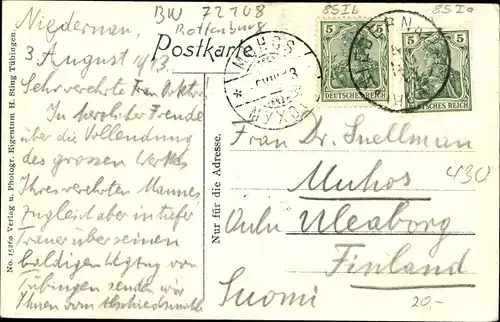 BW 72108
Rottenburg
85Ib
85Ia
Niedernau,
3 August 1913.
Postkarte
MUHOS
5
5
DEUTSCHES REICH
DEUTSCHES REICH
Sehr verehrte Frau Doktor!
In herzlicher Freude
über die Vollendung
des grossen Werkes
Ihres verehrten Mannes
zugleich aber in tiefer
Trauer über seinen
baldigen Wegzug von
Tübingen senden wir
Ihnen vom Abschiedsmahle
No. 15260 Verlag u. Photogr. Eigentum H. Sting Tübingen.
Nur für die Adresse.
Frau Dr. Snellman
Muhos
430
Oulu Uleaborg
Finland
Suomi
20,-